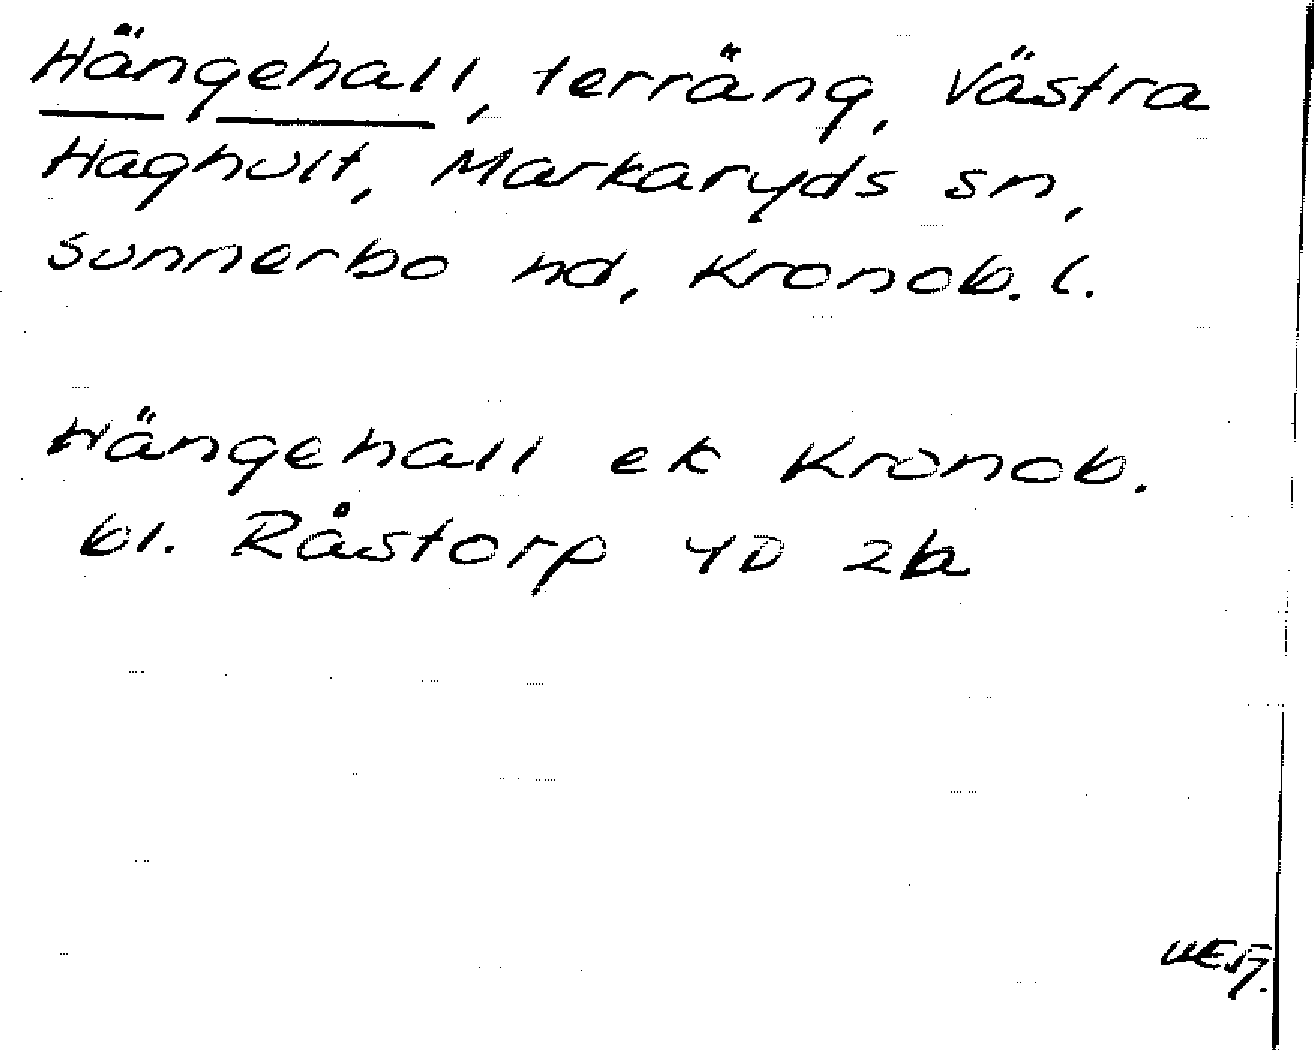 Hängehall, terräng, Västra
Haghult, Markaryds sn,
Sunnerbo hd, Kronob. l.
Hängehall ek Kronob.
bl. Råstorp 4D 2b